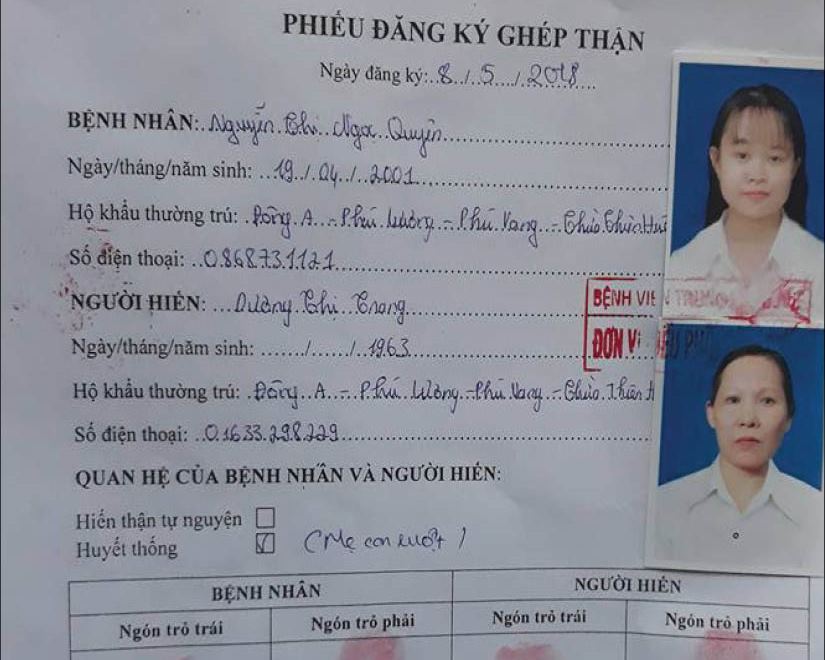 PHIẾU ĐĂNG KÝ GHÉP THẬN
Ngày đăng ký: 8/5/2018
BỆNH NHÂN: Nguyễn Thị Ngọc Quyên
Ngày/tháng/năm sinh: 19/04/2001
Hộ khẩu thường trú: Đông A - Phú Lương - Phú Vang - Thừa Thiên Huế
Số điện thoại: 0868731121
NGƯỜI HIẾN: Dương Thị Trang
BỆNH VIỆN TRUNG
Ngày/tháng/năm sinh: ....../....../1963
ĐƠN VỊ
Hộ khẩu thường trú: Đông A - Phú Lương - Phú Vang - Thừa Thiên H
Số điện thoại: 01633.298.229
QUAN HỆ CỦA BỆNH NHÂN VÀ NGƯỜI HIẾN:
Hiến thận tự nguyện ☐
Huyết thống ☑ (Mẹ con ruột)
BỆNH NHÂN NGƯỜI HIẾN
Ngón trỏ trái Ngón trỏ phải Ngón trỏ trái Ngón trỏ phải